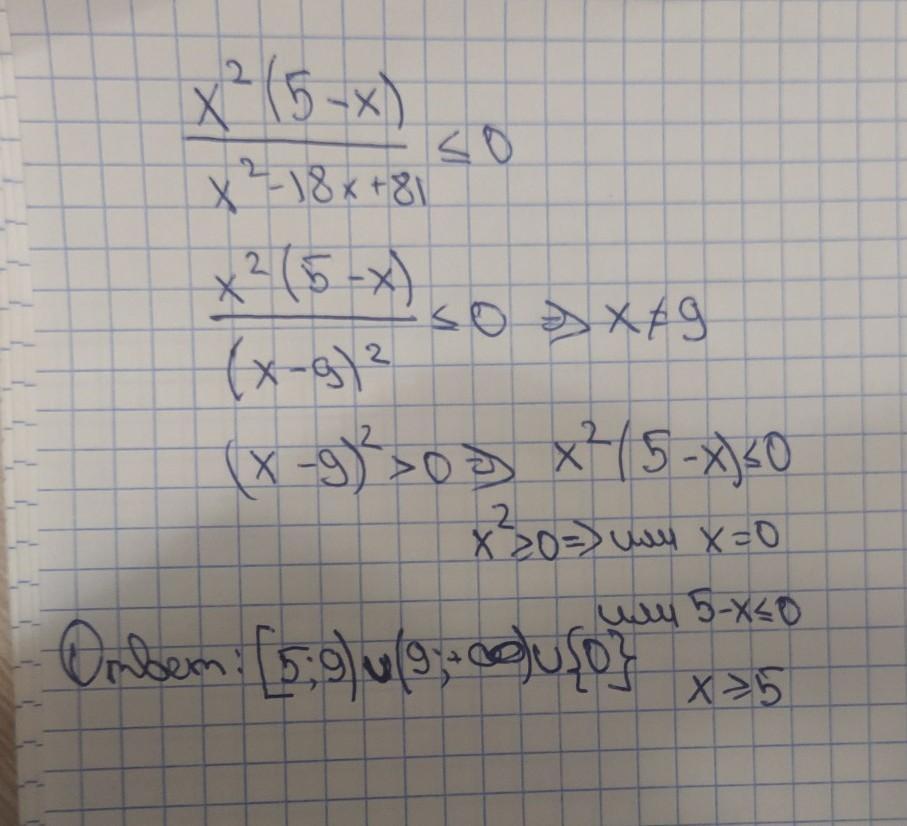 x²(5-x)
/ x²-18x+81 ≤ 0
x²(5-x)
/ (x-9)² ≤ 0 ⇒ x≠9
(x-9)²>0 ⇒ x²(5-x)≤0
x²≥0 ⇒ или x=0
или 5-x≤0
Ответ: [5;9)∪(9;+∞)∪{0}
x≥5